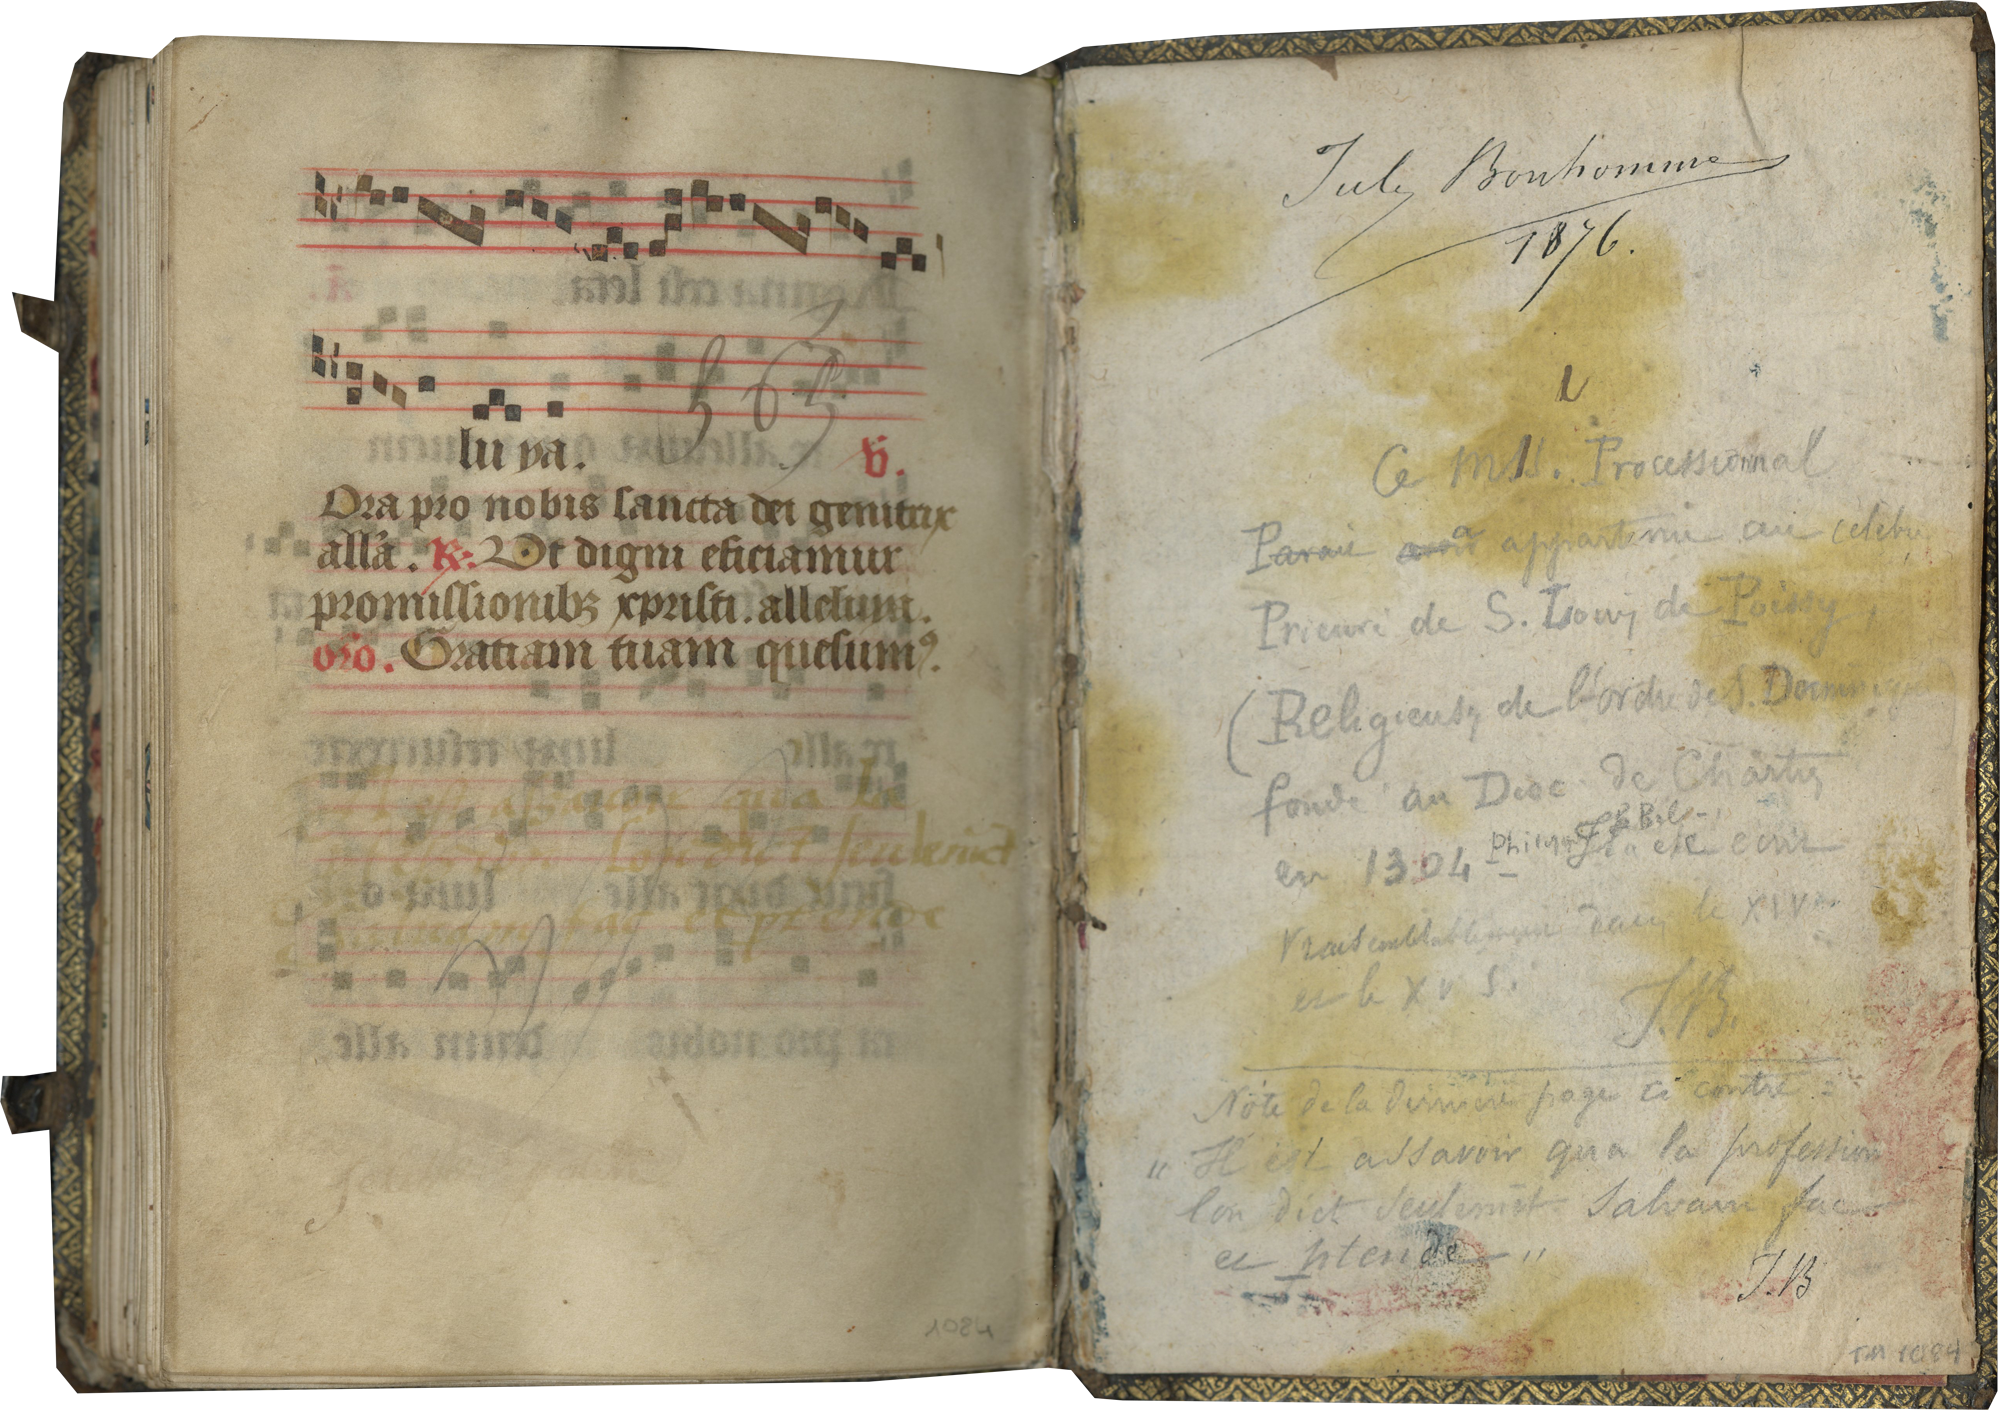 lu ya. v.
Ora pro nobis sancta dei genitrix
alla. R. Ut digni eficiamur
promissionibz xpristi. alleluia.
oro. Gratiam tuam quesumꝰ.
565
est assavoir qua la
lon dict seulemēt
fac et ptende
1084
Jules Bonhomme
1876.
Ce MSS. Processionnal
Parait avoir a appartenu au célebre
Prieuré de S. Louis de Poissy
(Religieuses de l'ordre de S. Dominique
fondé au Dioc. de Chartres
en 1304 Philippe le Bel Il a été écrit
vraisemblablement dans le XIV
et le XV S.
J.B.
Note de la derniere page ci contre =
"Il est assavoir qua la profession
lon dict seulemēt Salvam fac
et ptende"
J.B
TM 1084